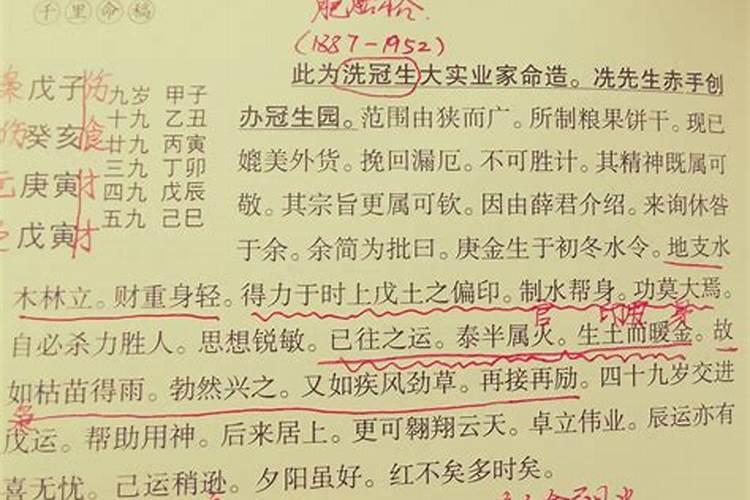 千里命稿
(1887-1952)
此为冼冠生大实业家命造。冼先生赤手创
枭 戊子 伤 九岁 甲子
办冠生园。范围由狭而广。所制粮果饼干。现已
十九 乙丑
伤 癸亥 食 廿九 丙寅
媲美外货。挽回漏厄。不可胜计。其精神既属可
三九 丁卯
元 庚寅 才 四九 戊辰
敬。其宗旨更属可钦。因由薛君介绍。来询休咎
五九 己巳
戊寅 才
于余。余简为批曰。庚金生于初冬水令。地支水
木林立。财重身轻。得力于时上戊土之偏印。制水帮身。功莫大焉。
官 印
自必杀力胜人。思想锐敏。已往之运。泰半属火。生土而暖金。故
如枯苗得雨。勃然兴之。又如疾风劲草。再接再励。四十九岁交进
枭
戊运。帮助用神。后来居上。更可翱翔云天。卓立伟业。辰运亦有
喜无忧。己运稍逊。夕阳虽好。红不矣多时矣。